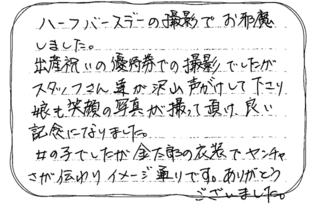 ハーフバースデーの撮影でお邪魔
しました。
出産祝いの優待券での撮影でしたが
スタッフさん達が沢山声がけして下さり
娘も笑顔の写真が撮って頂け、良い
記念になりました。
女の子でしたが金太郎の衣装でヤンチャ
さが伝わりイメージ通りです。ありがとう
ございました。